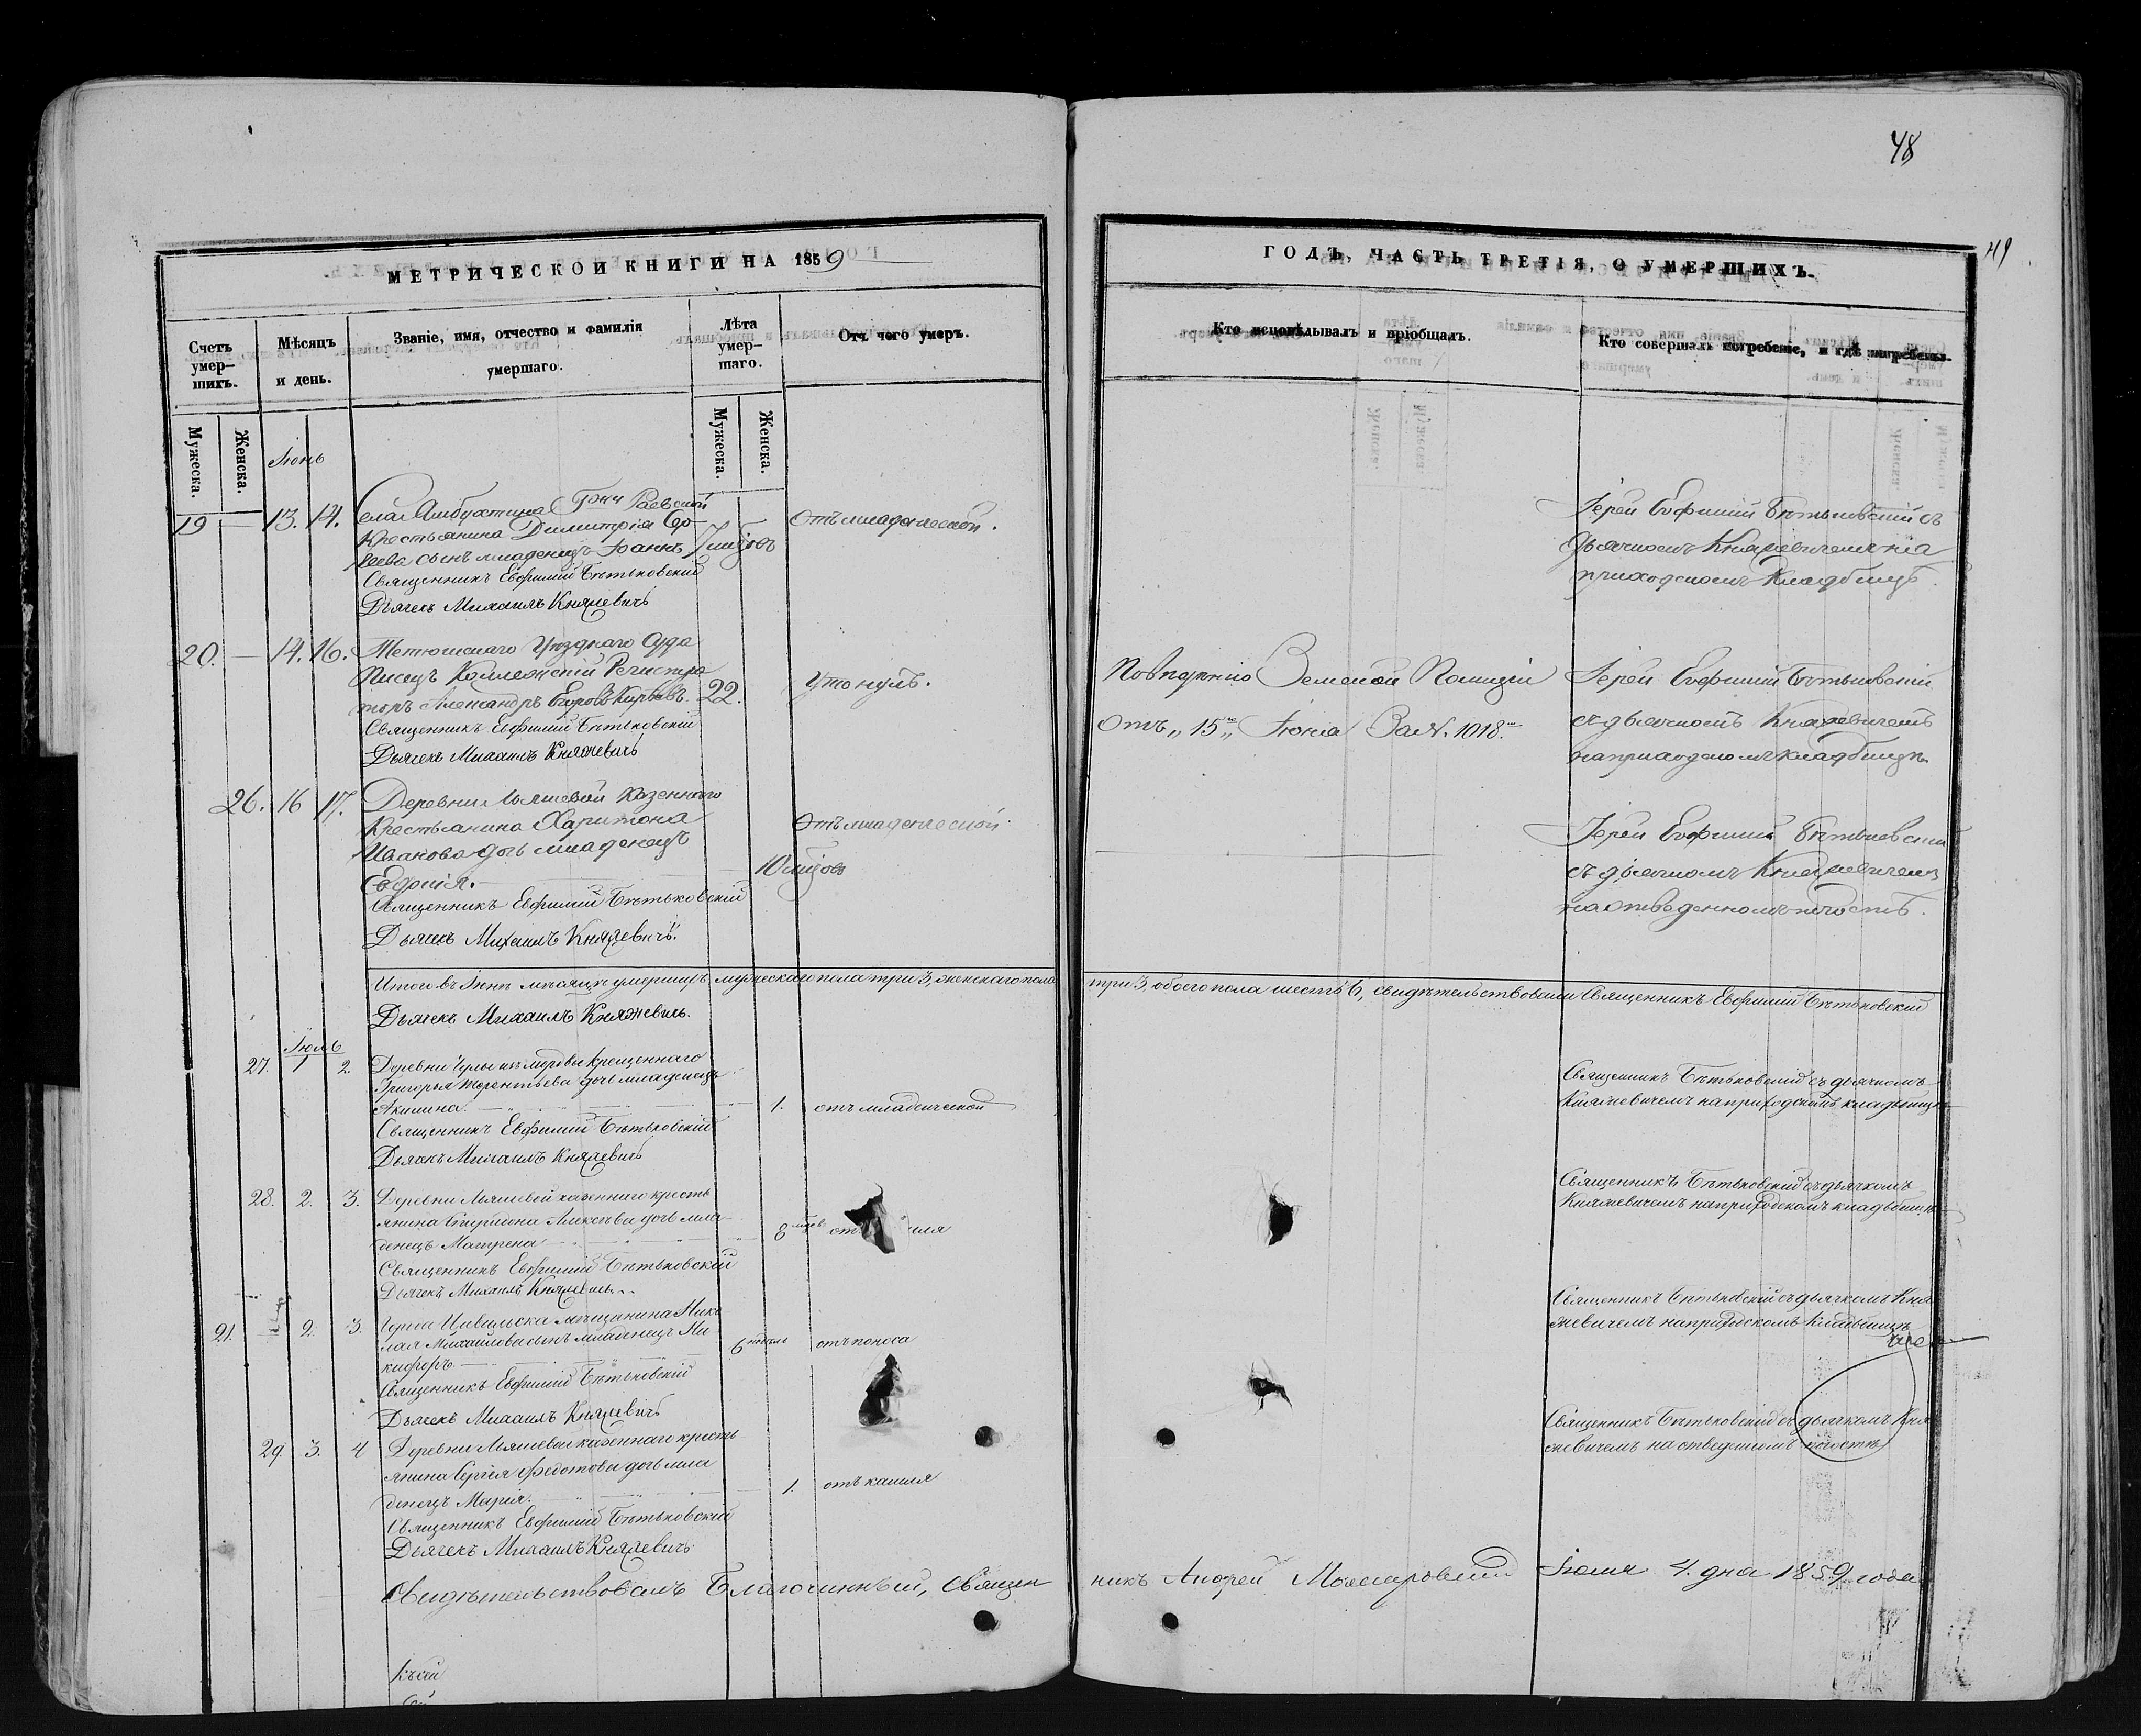 48
49
МЕТРИЧЕСКОЙ КНИГИ НА 1859
ГОДЪ, ЧАСТЬ ТРЕТІЯ, О УМЕРШИХЪ.
Счетъ умер-шихъ.
Мѣсяцъ и день.
Званіе, имя, отчество и фамилія умершаго.
Лѣта умер-шаго.
Отъ чего умеръ.
Кто исповѣдывалъ и пріобщалъ.
Кто совершалъ погребеніе, и гдѣ погребены.
Мужеска.
Женска.
Мужеска.
Женска.
Іюнь
19 — 13. 14.
села Гжи Раевской
крестьянина Димитрія Сер-
геева сынъ младенецъ Іоаннъ
7 мцовъ
отъ младенческой.
Священникъ Евфимій Бѣтьковскій
Дьячекъ Михаилъ Княжевичь
Іерей Евфимій Бѣтьковскій съ
дьячкомъ Княжевичемъ на
приходскомъ кладбищѣ.
20. — 14. 16.
Тетюшскаго Уѣзднаго Суда
Писецъ Коллежскій Регистра
торъ Александръ
22.
утонулъ.
Священникъ Евфимій Бѣтьковскій
Дьячекъ Михаилъ Княжевичь
Земской Полиціи
отъ „15„ Іюня За N. 1018.
Іерей Евфимій Бѣтьковскій
съ дьячкомъ Княжевичемъ
на приходскомъ кладбищѣ.
26. 16 17.
Деревни Ляшевой казеннаго
Крестьянина Харитона
Иванова дочь младенецъ
Евдокія.
10 мцовъ
отъ младенческой.
Священникъ Евфимій Бѣтьковскій
Дьячекъ Михаилъ Княжевичь.
Іерей Евфимій Бѣтьковскій
съ дьячкомъ Княжевичемъ
на отведенномъ погостѣ.
Итого въ Іюнѣ мѣсяцѣ умершихъ мужескаго пола три 3, женскаго пола три 3, обоего пола шесть 6, свидѣтельствовали Священникъ Евфимій Бѣтьковскій
Дьячекъ Михаилъ Княжевичь.
Іюль
27. 1 2.
Деревни крещеннаго
Григорья Терентьева дочь младенецъ
Акилина.
1. отъ младенческой
Священникъ Евфимій Бѣтьковскій
Дьячекъ Михаилъ Княжевичь
Священникъ Бѣтьковскій съ дьячкомъ
Княжевичемъ на приходскомъ кладбищѣ
28. 2. 3.
Деревни Ляшевой казеннаго кресть
янина Алексѣева дочь мла
денецъ Матрена
8 мцов
Священникъ Евфимій Бѣтьковскій
Дьячекъ Михаилъ Княжевичь
Священникъ Бѣтьковскій съ дьячкомъ
Княжевичемъ на приходскомъ кладбищѣ
21. 2. 3.
Города Цивильска мѣщанина Нико
лая Михайлова сынъ младенецъ Ни
кифоръ
6 недѣль отъ поноса
Священникъ Евфимій Бѣтьковскій
Дьячекъ Михаилъ Княжевичь
Священникъ Бѣтьковскій съ дьячкомъ Кня
жевичемъ на приходскомъ кладбищѣ
29. 3. 4
Деревни Ляшевой казеннаго кресть
янина Сергѣя Федотова дочь мла
денецъ Марія.
1. отъ кашля
Священникъ Евфимій Бѣтьковскій
Дьячекъ Михаилъ Княжевичь
Священникъ Бѣтьковскій съ дьячкомъ Кня
жевичемъ на отведенномъ погостѣ
Свидѣтельствовалъ Благочинный, Священ никъ Андрей Іюля 4. дня 1859 года